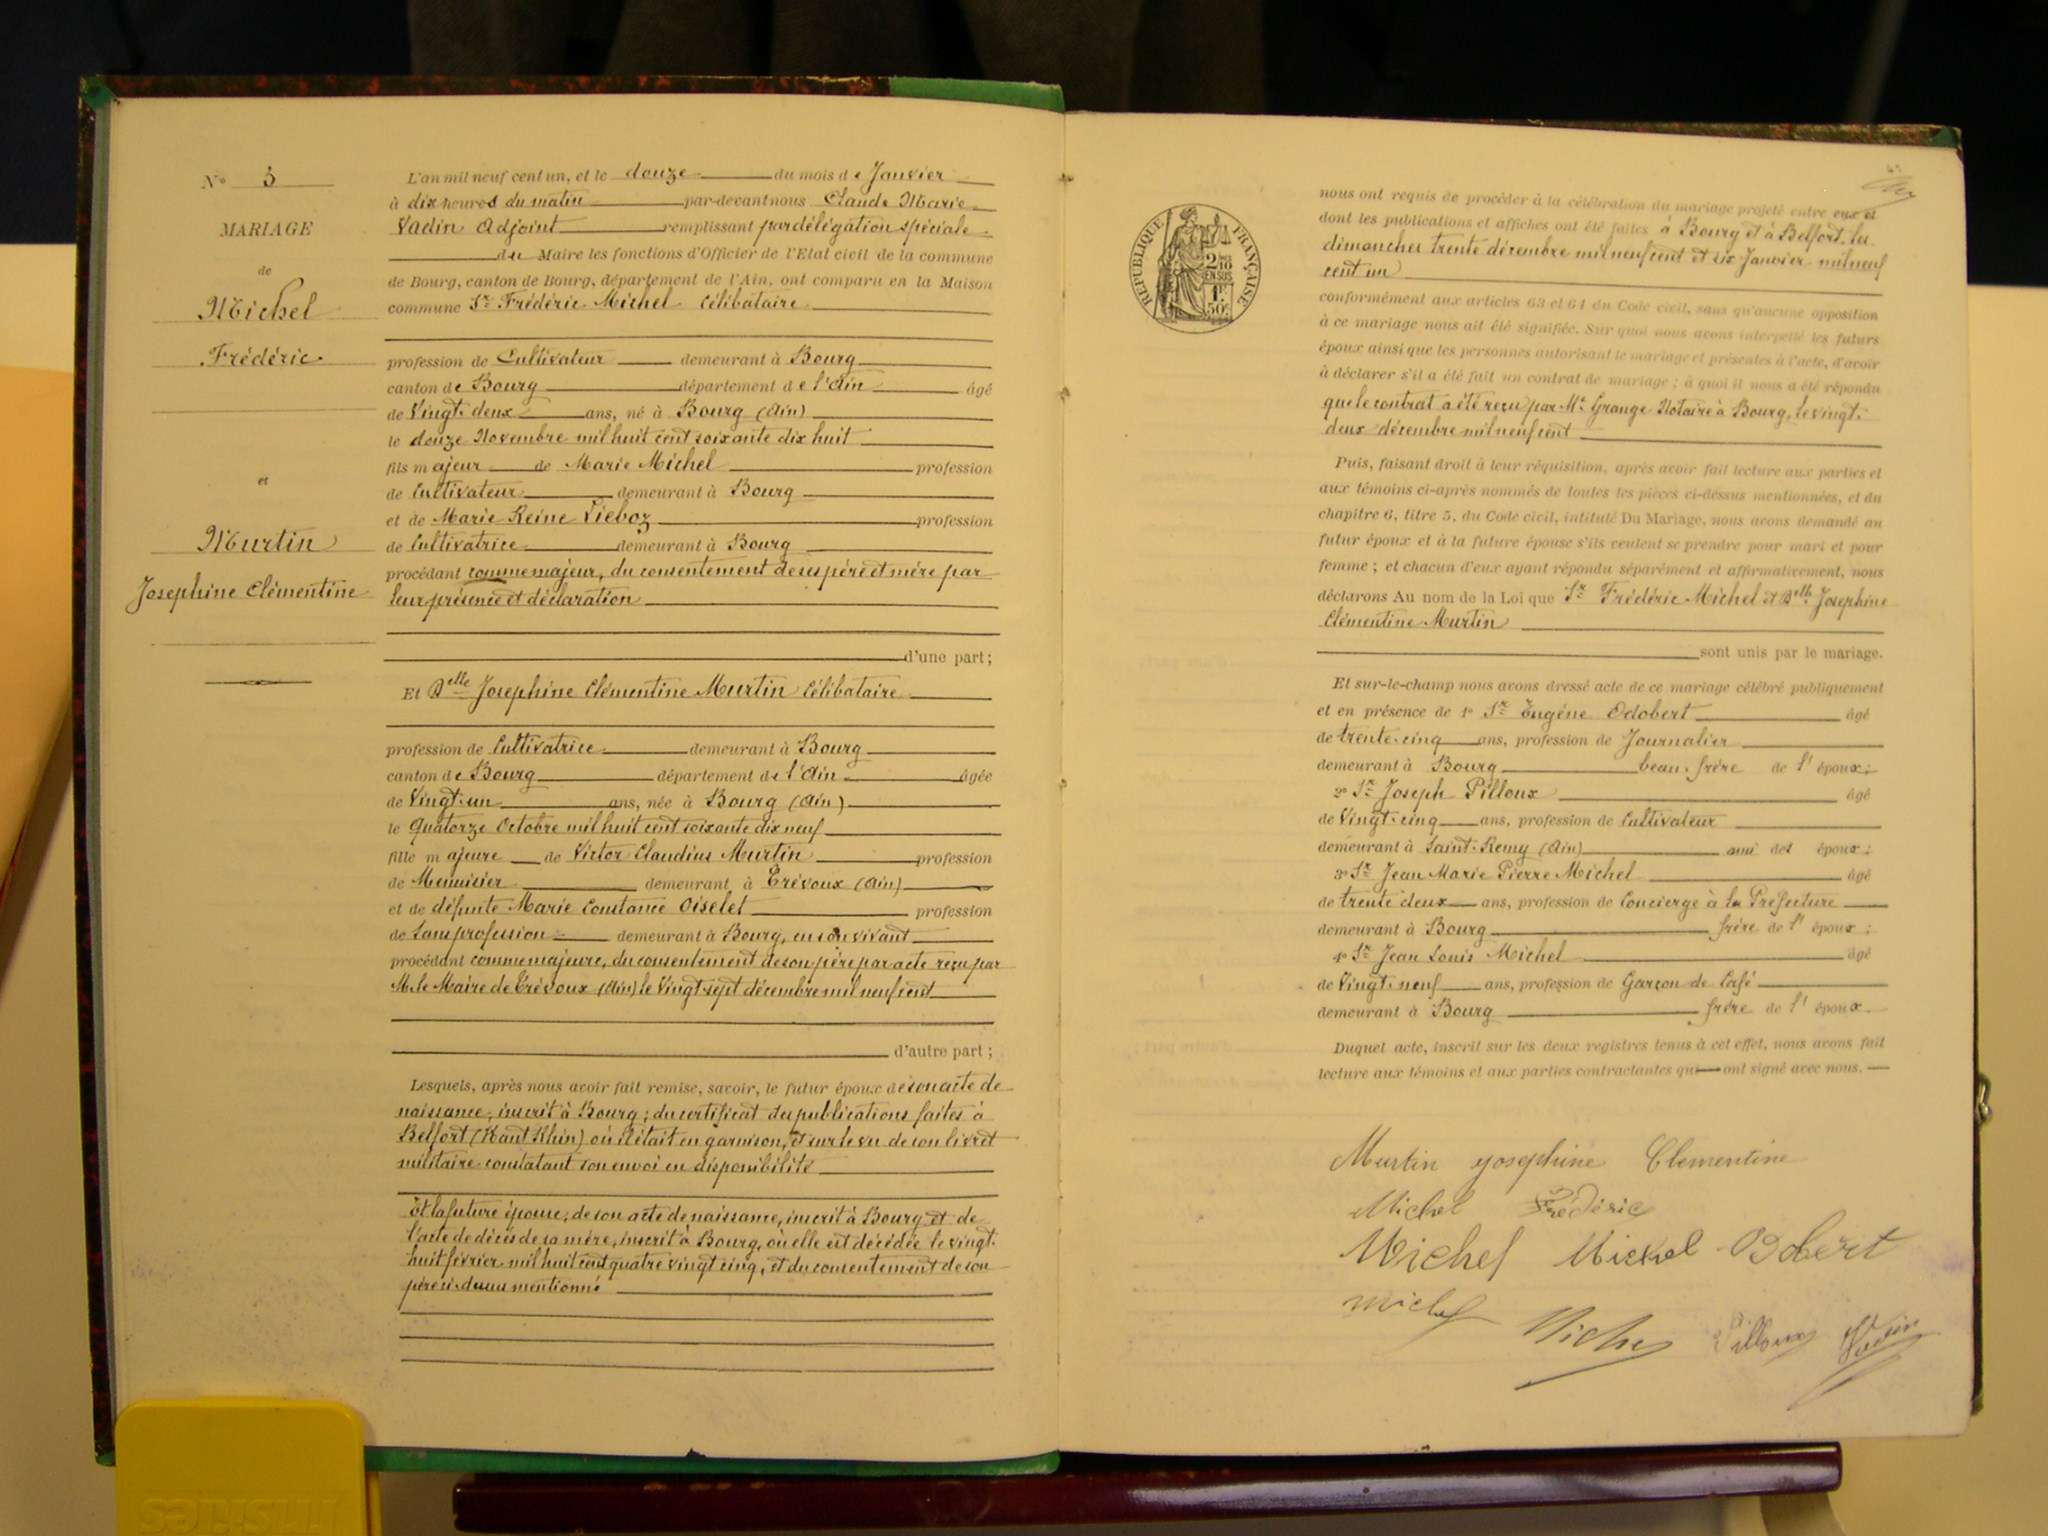 N° 5
MARIAGE
de
Michel
Frédéric
et
Murtin
Josephine Clémentine
L'an mil neuf cent un, et le douze du mois de Janvier
à dix heures du matin par-devant nous Claude Marie
Vadin Adjoint remplissant par délégation spéciale
du Maire les fonctions d'Officier de l'Etat civil de la commune
de Bourg, canton de Bourg, département de l'Ain, ont comparu en la Maison
commune Sr Frédéric Michel célibataire
profession de Cultivateur demeurant à Bourg
canton de Bourg département de l'Ain âgé
de Vingt-deux ans, né à Bourg (Ain)
le douze Novembre mil huit cent soixante dix huit
fils majeur de Marie Michel profession
de Cultivateur demeurant à Bourg
et de Marie Reine Vieboz profession
de Cultivatrice demeurant à Bourg
procédant comme majeur, du consentement de ses père et mère par
leur présence et déclaration
d'une part;
Et Delle Josephine Clémentine Murtin célibataire
profession de Cultivatrice demeurant à Bourg
canton de Bourg département de l'Ain âgée
de Vingt-un ans, née à Bourg (Ain)
le Quatorze Octobre mil huit cent soixante dix neuf
fille majeure de Victor Claudius Murtin profession
de Menuisier demeurant à Trévoux (Ain)
et de défunte Marie Constance Oiselet profession
de Sans profession demeurant à Bourg, en son vivant
procédant comme majeure, du consentement de son père par acte reçu par
M. le Maire de Trévoux (Ain) le Vingt-sept décembre mil neuf cent
d'autre part;
Lesquels, après nous avoir fait remise, savoir, le futur époux de son acte de
naissance, inscrit à Bourg; du certificat des publications faites à
Belfort (Haut Rhin) où il était en garnison, et sur le vu de son livret
militaire constatant son envoi en disponibilité
Et la future épouse; de son acte de naissance, inscrit à Bourg et de
l'acte de décès de sa mère, inscrit à Bourg, où elle est décédée le vingt-
huit février mil huit cent quatre vingt cinq, et du consentement de son
père ci-dessus mentionné
RÉPUBLIQUE FRANÇAISE
2/10
EN SUS
1F
50c
nous ont requis de procéder à la célébration du mariage projeté entre eux et
dont les publications et affiches ont été faites à Bourg et à Belfort, les
dimanches trente décembre mil neuf cent et six Janvier mil neuf
cent un
conformément aux articles 63 et 64 du Code civil, sans qu'aucune opposition
à ce mariage nous ait été signifiée. Sur quoi nous avons interpellé les futurs
époux ainsi que les personnes autorisant le mariage et présentes à l'acte, d'avoir
à déclarer s'il a été fait un contrat de mariage; à quoi il nous a été répondu
que le contrat a été reçu par Me Grange Notaire à Bourg, le vingt-
deux décembre mil neuf cent
Puis, faisant droit à leur réquisition, après avoir fait lecture aux parties et
aux témoins ci-après nommés de toutes les pièces ci-dessus mentionnées, et du
chapitre 6, titre 5, du Code civil, intitulé Du Mariage, nous avons demandé au
futur époux et à la future épouse s'ils veulent se prendre pour mari et pour
femme; et chacun d'eux ayant répondu séparément et affirmativement, nous
déclarons Au nom de la Loi que Sr Frédéric Michel et Delle Josephine
Clémentine Murtin
sont unis par le mariage.
Et sur-le-champ nous avons dressé acte de ce mariage célébré publiquement
et en présence de 1° Sr Eugène Odobert âgé
de trente-cinq ans, profession de Journalier
demeurant à Bourg beau-frère de l'époux;
2° Sr Joseph Pilloux âgé
de Vingt-cinq ans, profession de Cultivateur
demeurant à Saint-Remy (Ain) ami des époux;
3° Sr Jean Marie Pierre Michel âgé
de trente deux ans, profession de Concierge à la Préfecture
demeurant à Bourg frère de l'époux;
4° Sr Jean Louis Michel âgé
de Vingt-neuf ans, profession de Garçon de Café
demeurant à Bourg frère de l'époux.
Duquel acte, inscrit sur les deux registres tenus à cet effet, nous avons fait
lecture aux témoins et aux parties contractantes qui ont signé avec nous.
Murtin yosephine Clementine
Michel Frédéric
Michel Michel Odobert
michel
Michel Pilloux Vadin